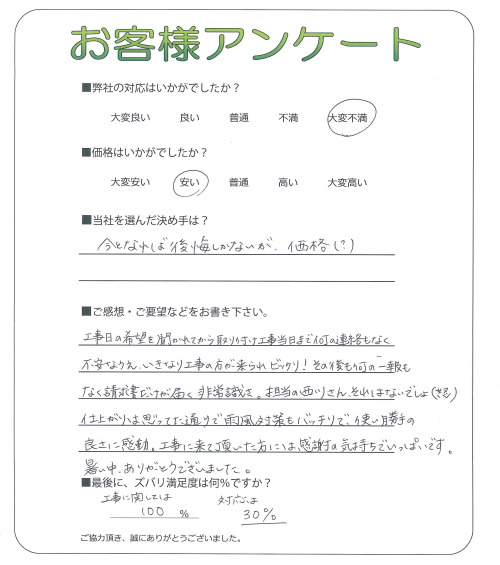 お客様アンケート
■弊社の対応はいかがでしたか?
大変良い 良い 普通 不満 大変不満
■価格はいかがでしたか?
大変安い 安い 普通 高い 大変高い
■当社を選んだ決め手は?
今となれば後悔しかないが、価格(?)
■ご感想・ご要望などをお書き下さい。
工事日の希望を聞かれてから取り付け工事当日まで何の連絡もなく
不安な中、いきなり工事の方が来られビックリ!その後も何の一報も
なく請求書だけが届く非常識さ。担当の西川さん、それはないでしょ(怒)
仕上がりは思ってた通りで雨風対策もバッチリで、使い勝手の
良さに感動。工事に来て頂いた方には感謝の気持ちでいっぱいです。
暑い中、ありがとうございました。
■最後に、ズバリ満足度は何%ですか?
工事に関しては 対応は
100 % 30%
ご協力頂き、誠にありがとうございました。